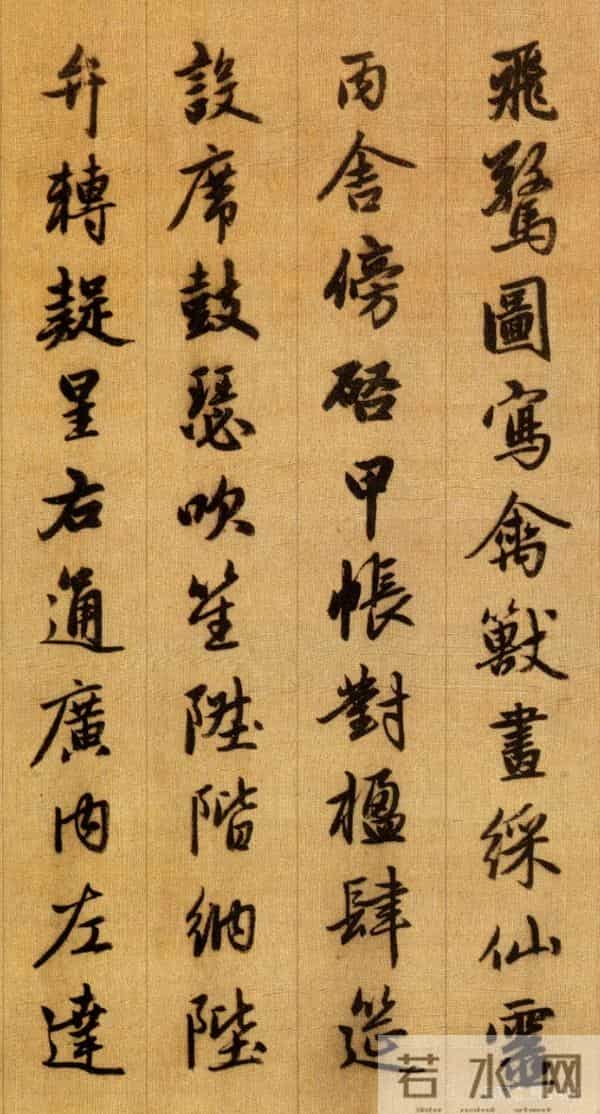 飛驚圖寫禽獸畫綵仙靈
丙舍傍啓甲帳對楹肆筵
設席鼓瑟吹笙陞階納陛
弁轉疑星右通廣內左達
若水网